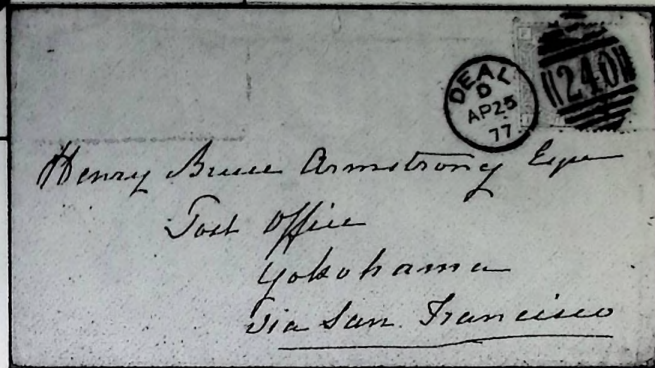 DEAL
D
AP25
77
240
Henry Bruce Armstrong Esqre
Post Office
Yokohama
Via San Francisco